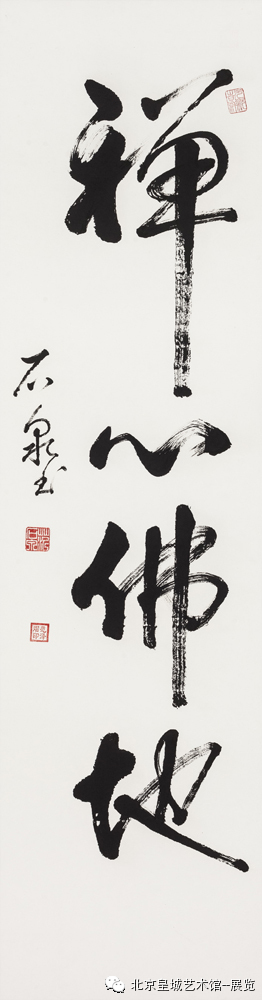 禅心佛地
石泉书
北京皇城艺术馆-展览